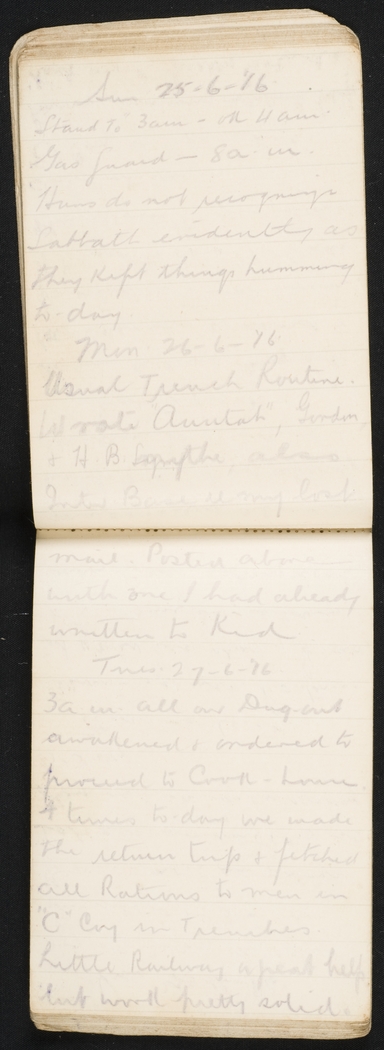 Sun 25-6-'16
Stand To 3am - till 4am.
Gas guard - 8a.m.
Huns do not recognize
Sabbath evidently as
they kept things humming
to-day.
Mon. 26-6-'16
Usual Trench Routine.
Wrote "Auntah", Gordon
& H. B. also
Base my lost
mail. Posted above
with one I had already
written to Kid
Tues. 27-6-'16
3a.m. all our Dug-out
awakened & ordered to
proceed to Cook-house.
4 times to-day we made
the return trip & fetched
all Rations to men in
"C" Coy in Trenches.
Little Railway a great help
but work pretty solid.